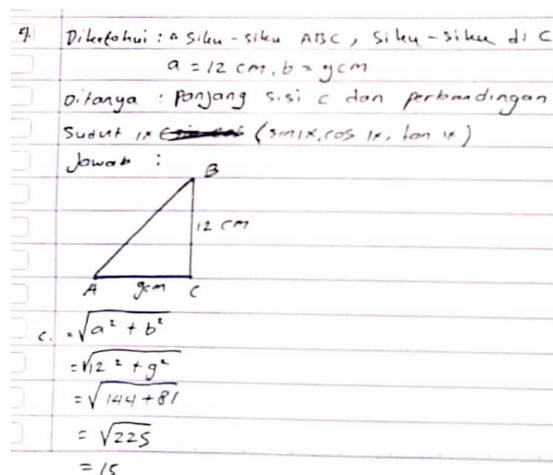 9. Diketahui : △ siku-siku ABC, siku-siku di C
a = 12 cm, b = 9cm
Ditanya : Panjang sisi c dan perbandingan
Sudut (sin, cos, tan)
Jawab :
B
12 cm
A 9cm C
c. = √a² + b²
= √12² + 9²
= √144 + 81
= √225
= 15